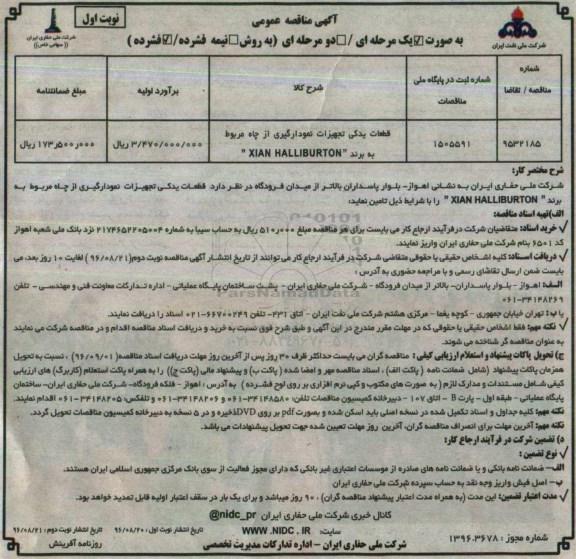 آگهی مناقصه عمومی
نوبت اول
به صورت☑یک مرحله ای /☐دو مرحله ای (به روش☐نیمه فشرده/☑فشرده )
شرکت ملی نفت ایران
شرکت ملی حفاری ایران
(( سهامی خاص ))
شماره مناقصه / تقاضا
شماره ثبت در پایگاه ملی مناقصات
شرح کالا
برآورد اولیه
مبلغ ضمانتنامه
۹۵۳۲۱۸۵
۱۵۰۵۵۹۱
قطعات یدکی تجهیزات نمودارگیری از چاه مربوط به برند "XIAN HALLIBURTON "
۳/۴۷۰/۰۰۰/۰۰۰ ریال
۱۷۳٫۵۰۰٫۰۰۰ ریال
شرح مختصر کار:
شرکت ملی حفاری ایران به نشانی اهواز- بلوار پاسداران بالاتر از میدان فرودگاه در نظر دارد قطعات یدکی تجهیزات نمودارگیری از چاه مربوط به
برند " XIAN HALLIBURTON " را با شرایط ذیل تامین نماید:
الف)تهیه اسناد مناقصه:
✓ خرید اسناد: متقاضیان شرکت درفرآیند ارجاع کار می بایست برای هر مناقصه مبلغ ۵۱۰٫۰۰۰ ریال به حساب سیبا به شماره ۲۱۷۴۶۵۲۲۰۵۰۰۴ نزد بانک ملی شعبه اهواز
کد ۶۵۰۱ بنام شرکت ملی حفاری ایران واریز نمایند.
✓ دریافت اسناد: کلیه اشخاص حقیقی یا حقوقی متقاضی شرکت در فرآیند ارجاع کار می توانند از تاریخ انتشار آگهی مناقصه نوبت دوم(۹۶/۰۸/۲۱) لغایت ۱۰ روز بعد، می
بایست ضمن ارسال تقاضای رسمی و با مراجعه حضوری به آدرس :
الف: اهواز - بلوار پاسداران- بالاتر از میدان فرودگاه - شرکت ملی حفاری ایران - پشت ساختمان پایگاه عملیاتی - اداره تدارکات معاونت فنی و مهندسی - تلفن
۰۶۱-۳۴۱۴۸۲۶۹
یا ب: تهران خیابان جمهوری - کوچه یغما - مرکزی هشتم شرکت ملی نفت ایران - اتاق ۴۳۱- تلفن ۶۶۷۰۰۲۴۹-۰۲۱ اسناد را دریافت نمایند.
✓ نکته مهم: فقط اشخاص حقیقی یا حقوقی که در مهلت مقرر مندرج در این آگهی و طبق شرح فوق نسبت به خرید و دریافت اسناد مناقصه اقدام و در مناقصه شرکت می نمایند
به عنوان مناقصه گر شناخته می شوند.
ج) تحویل پاکات پیشنهاد و استعلام ارزیابی کیفی : مناقصه گران می بایست حداکثر ظرف ۳۰ روز پس از آخرین روز مهلت دریافت اسناد مناقصه( ۹۶/۰۹/۰۱) ، نسبت به تحویل
همزمان پاکات پیشنهاد (شامل ضمانت نامه ( پاکت الف) ، اسناد مناقصه مهر و امضا شده ( پاکت ب) و پیشنهاد مالی (پاکت ج)) را به همراه پاکت استعلام (کاربرگ) های ارزیابی
کیفی شامل مستندات و مدارک لازم ( به صورت های مکتوب و کپی نرم افزاری بر روی لوح فشرده ) به آدرس : اهواز - فلکه فرودگاه- شرکت ملی حفاری ایران- ساختمان
پایگاه عملیاتی - طبقه اول - پارت B - اتاق ۱۰۷ - دبیرخانه کمیسیون مناقصات تلفن: ۳۴۱۴۸۵۸۰-۰۶۱ و ۳۴۱۴۸۲۰۶-۰۶۱ و تلفکس: ۳۴۱۴۸۲۰۵-۰۶۱ اقدام نمایند.
نکته مهم: کلیه جداول و اسناد تکمیل شده در نسخه اصلی باید اسکن شده و بصورت pdf بر روی DVDذخیره و در ۵ نسخه به دبیرخانه کمیسیون مناقصات تحویل گردد.
نکته مهم: آخرین مهلت برای انصراف مناقصه گران، آخرین روز مهلت تعیین شده جهت تحویل پیشنهادات می باشد.
د) تضمین شرکت در فرآیند ارجاع کار:
✓ نوع تضمین :
الف- ضمانت نامه بانکی و یا ضمانت نامه های صادره از موسسات اعتباری غیر بانکی که دارای مجوز فعالیت از سوی بانک مرکزی جمهوری اسلامی ایران هستند.
ب- اصل فیش واریز وجه نقد به حساب سپرده شرکت ملی حفاری ایران
✓ مدت اعتبار تضمین: این مدت (به همراه مدت اعتبار پیشنهاد مناقصه گران) ، ۹۰ روز میباشد و برای یک بار در سقف اعتبار اولیه قابل تمدید خواهد بود.
کانال خبری شرکت ملی حفاری ایران @nidc_pr
سایت: WWW .NIDC . IR
شماره مجوز : ۱۳۹۶.۳۶۷۸
تاریخ انتشار نوبت اول : ۹۶/۰۸/۲۰
تاریخ انتشار نوبت دوم : ۹۶/۰۸/۲۱
شرکت ملی حفاری ایران - اداره تدارکات مدیریت تخصصی
روزنامه آفرینش
ParsNamadData